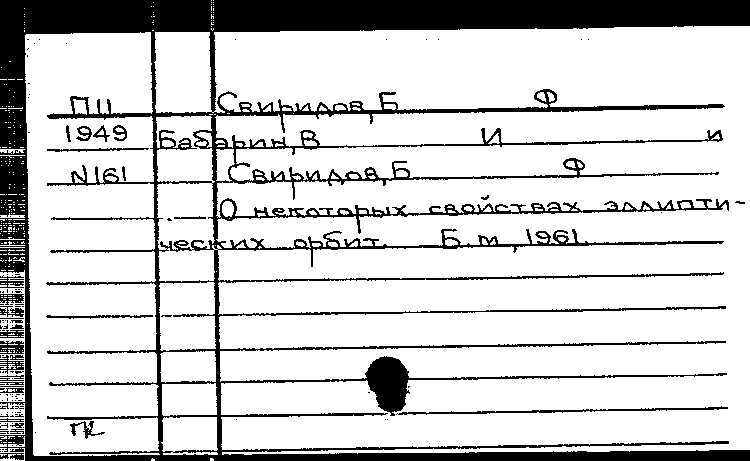 П11 Свиридов, Б Ф
1949 Бабарин, В И и
N161 Свиридов, Б Ф
О некоторых свойствах эллипти-
ческих орбит. Б.м, 1961.
ГК